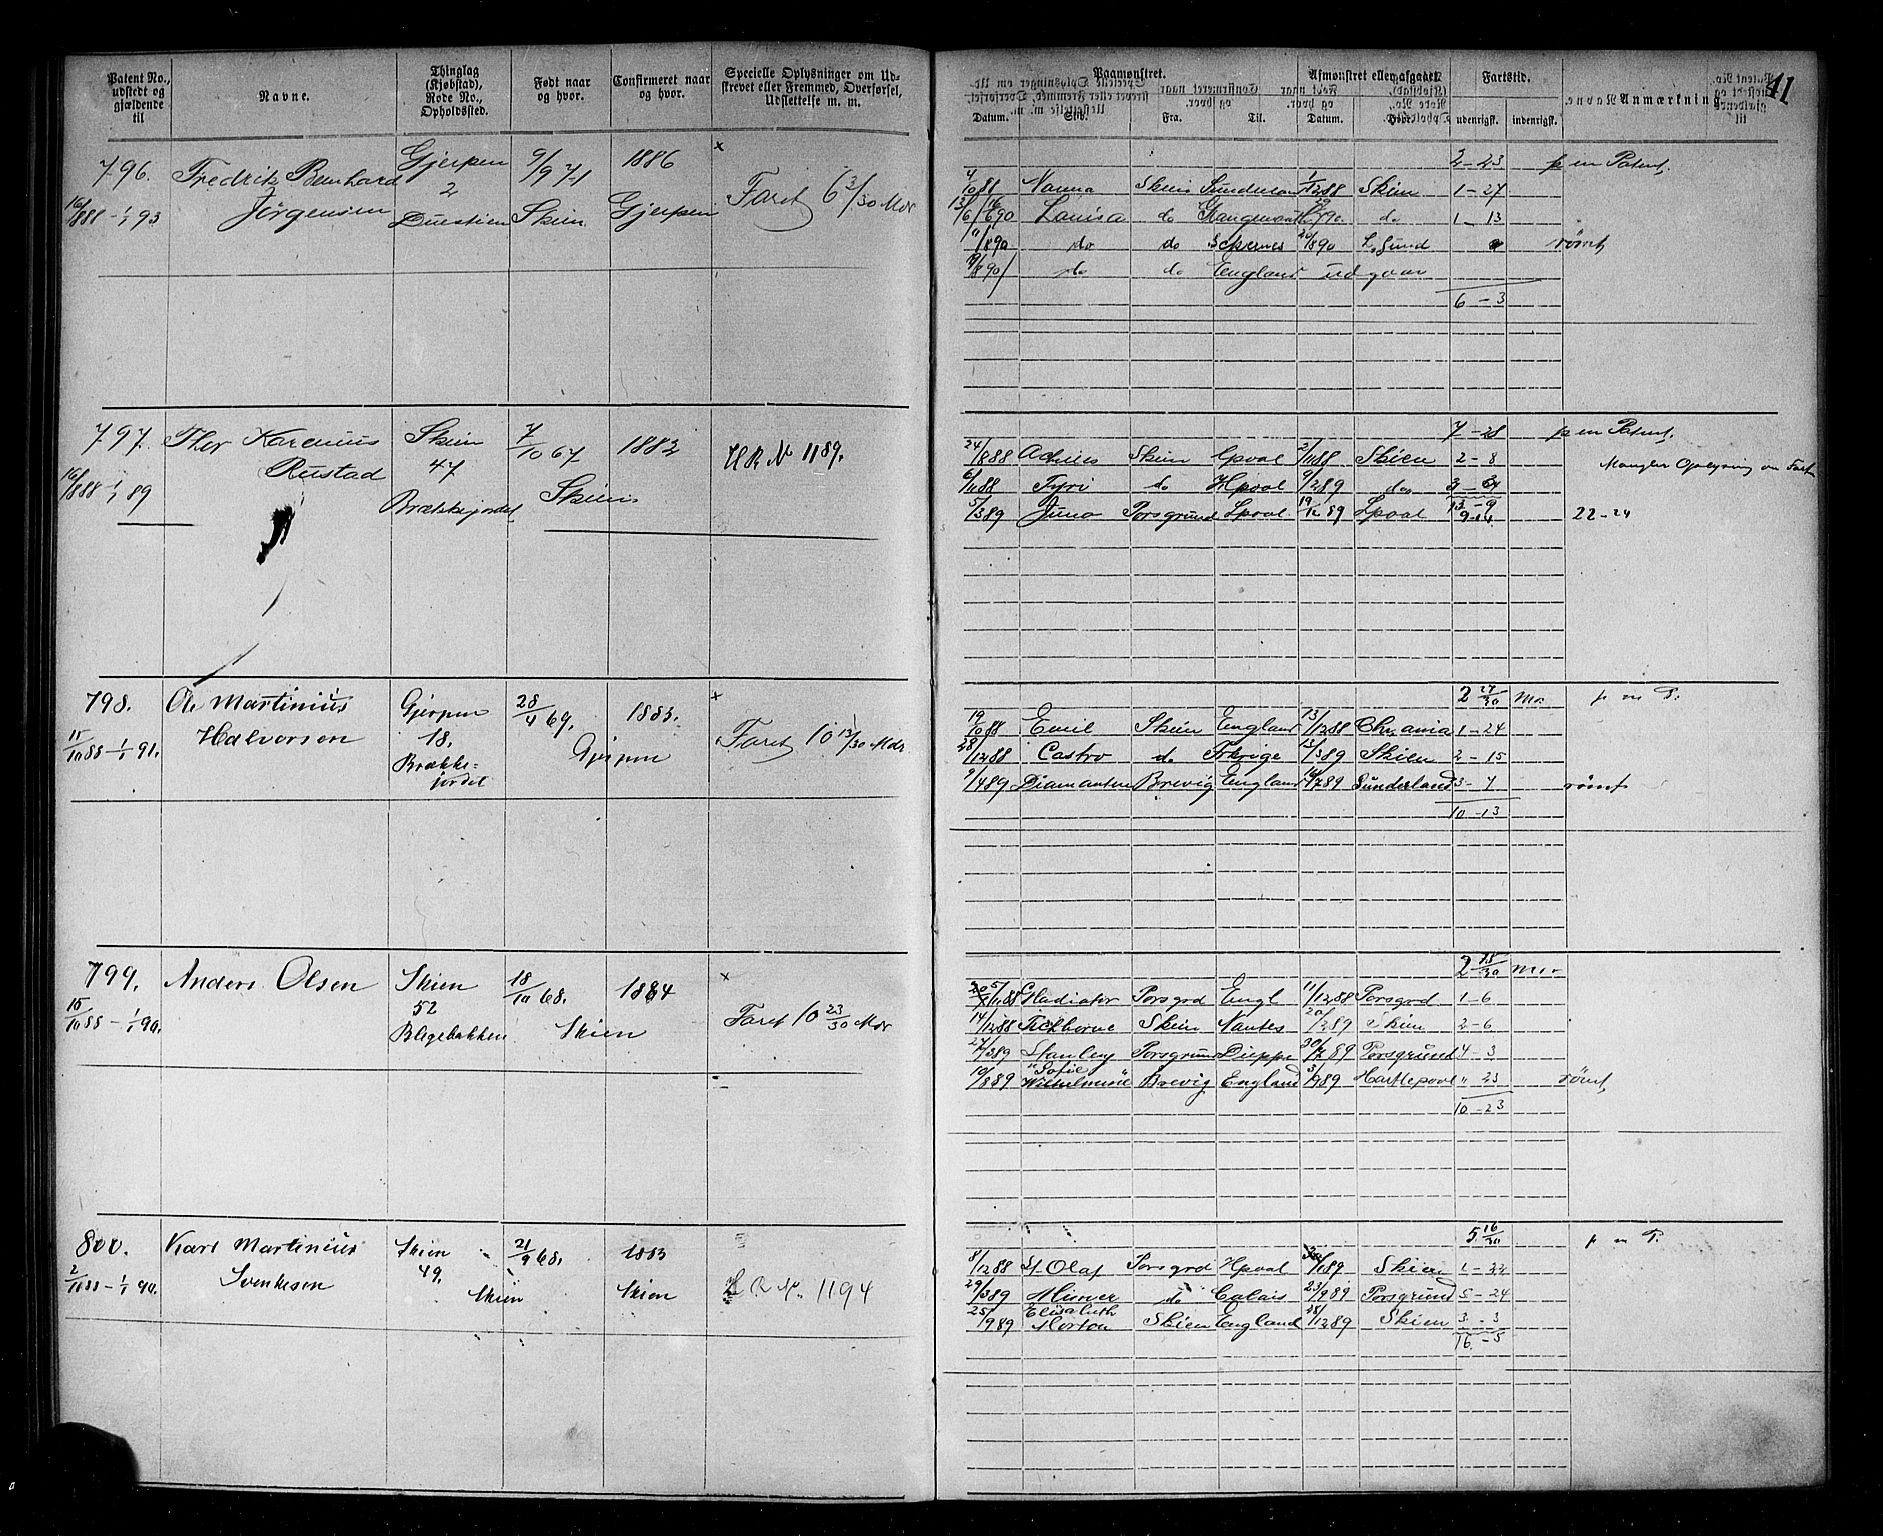 Patent No., udstedt og gjældende til
Navne.
Thinglag (Kjøbstad), Rode No., Opholdssted.
Født naar og hvor.
Confirmeret naar og hvor.
Specielle Oplysninger om Udstrevet eller Fremmed, Overførsel, Udslettelse m. m.
Paamønstret.
Datum. Skib. Fra. Til.
Afmønstret eller afgaaet.
Datum. Hvor.
Fartstid.
udenrigsk. indenrigsk.
Anmærkning
41
796. Fredrik Bernhard Gjerpen 9/9 71 1886 x
Jörgensen 2
16/8 88 - 1/1 93 Duestien Skien Gjerpen Faret 6 3/30 Mdr
2 - 23 p en Patent.
4/10 88 Nanna Skien 1/12 88 Skien 1 - 27
Louisa do do 1 - 13
11/8 90 do do 20/8 90 rømt
do do England udgaar
6 - 3
797. Thor Karenius Skien 7/10 67 1883
Rustad 47 H R No 1189.
16/8 88 1/1 89 Brækkejordet Skien
7 - 28 p en Patent.
24/8 88 Achilles Skien 2/11 88 Skien 2 - 8
Mangler Oplysning om Fart
6/11 88 Fyri do Hpool 9/2 89 do
5/3 89 Juno Porsgrund Lpool 19/12 89 Lpool 9-14 22-24
798. O. Martinius Gjerpen 28/4 69. 1883. x
Halvorsen 18.
11/10 88 - 1/1 91. Brække-
jordet Gjerpen Faret 10 13/30 Mdr
2 27/30 Mo. p en P.
19/10 88 Emil Skien England 13/12 88 Chrania 1 - 24
28/12 88 Castro do 13/3 89 Skien 2 - 15
9/4 89 Diamanten Brevig England 16/7 89 Sunderland 3 - 7 rømt
10 - 13
799. Anders Olsen Skien 18/10 68. 1884 x
52
15/10 88 - 1/1 90. Blegebakken Skien Faret 10 23/30 Mdr
2 15/30 Mo.
5/11 88 Gladiator Porsgrd Engl 11/12 88 Porsgrd 1 - 6
14/12 88 Tichborne Skien Nantes 20/2 89 Skien 2 - 6
27/3 89 Stanley Porsgrund Dieppe 30/7 89 Porsgrund 4 - 3
Sofie
10/8 89 Wilhelmine Brevig England 3/9 89 Hartlepool " 23 rømt
10 - 23
800. Karl Martinius Skien 21/9 68. 1883
Svenkesen 49.
2/11 88 - 1/1 90. Skien Skien H R No. 1194
5 16/30 p en P.
8/12 88 St. Olaf Porsgrd Hpool Skien 1 - 22
29/3 89 Minner do Calais 23/9 89 Porsgrund 5 - 24
Elisabeth
25/9 89 Morton Skien England 28/12 89 Skien 3 - 3
16 - 5